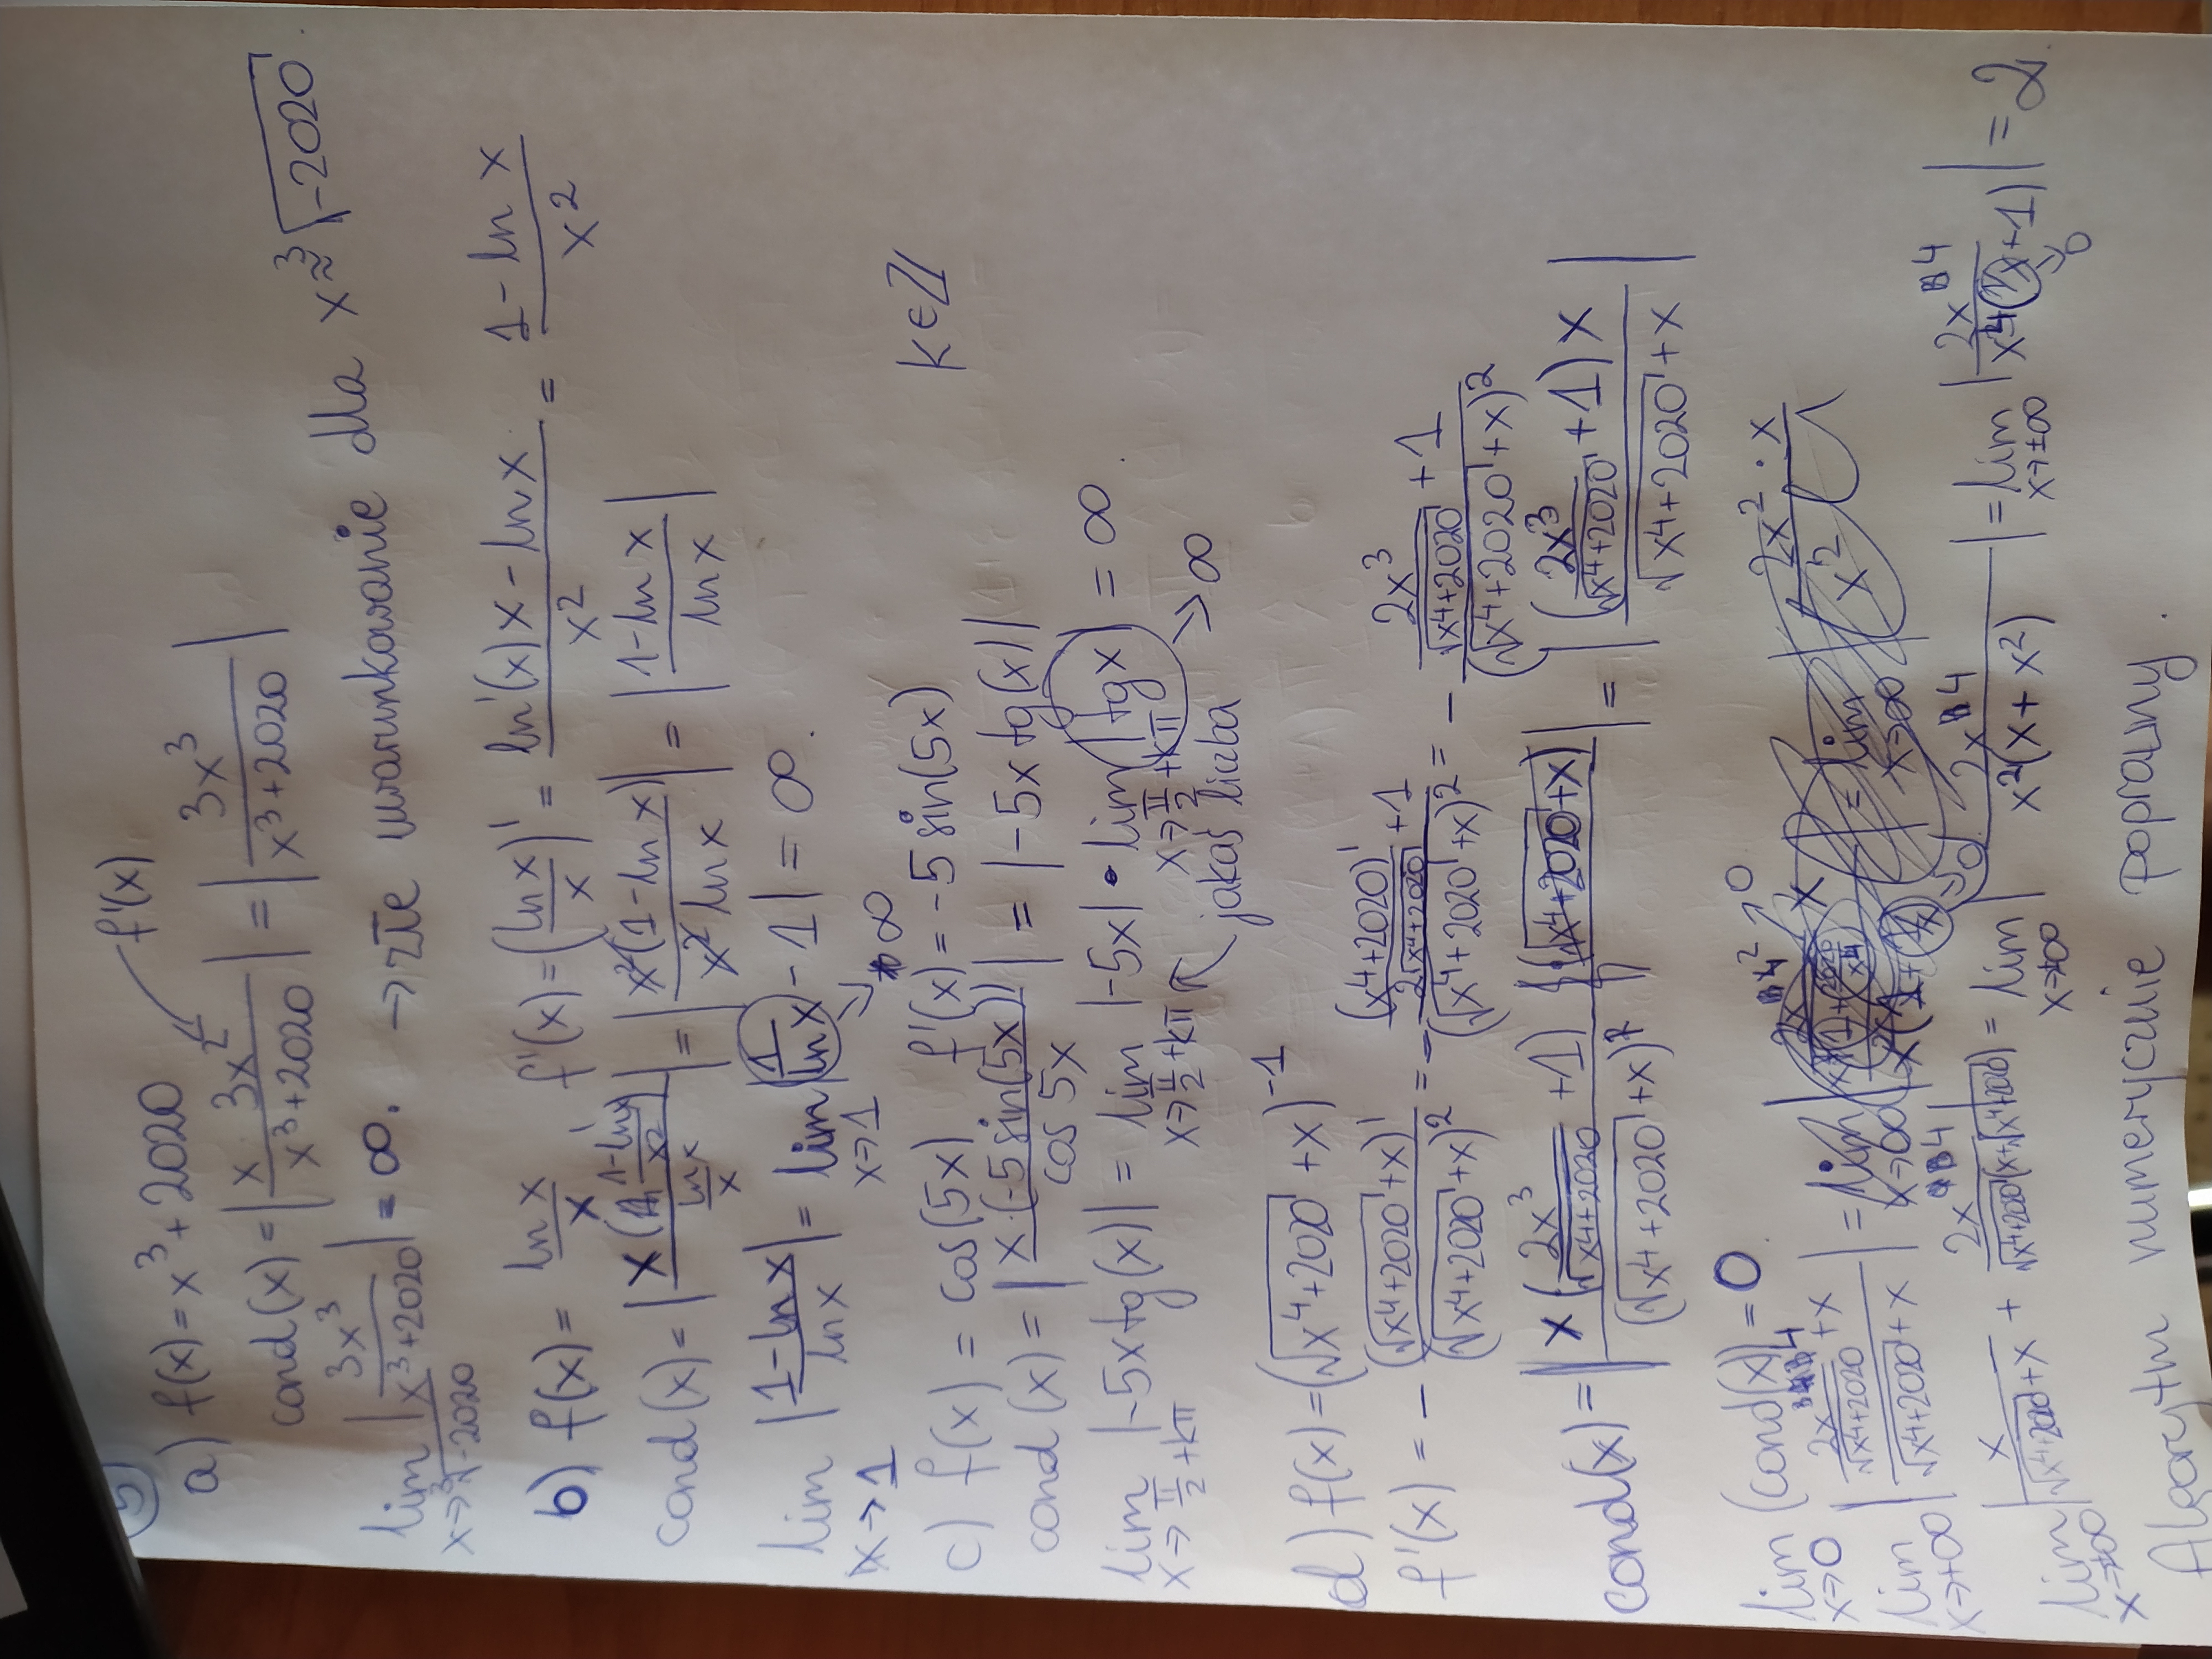 5)
a) f(x) = x³ + 2020 f'(x)
cond(x) = |x · 3x² / (x³ + 2020)| = |3x³ / (x³ + 2020)|
lim_{x→∛-2020} |3x³ / (x³ + 2020)| = ∞. → złe uwarunkowanie dla x ≈ ∛-2020.
b) f(x) = ln x / x, f'(x) = (ln x / x)' = (ln'(x) x - ln x) / x² = (1 - ln x) / x²
cond(x) = |x ((1 - ln x) / x²) / (ln x / x)| = |x² (1 - ln x) / (x² ln x)| = |(1 - ln x) / ln x|
lim_{x→1} |(1 - ln x) / ln x| = lim_{x→1} |1 / ln x - 1| = ∞.
→ ∞
c) f(x) = cos(5x), f'(x) = -5 sin(5x) k ∈ ℤ
cond(x) = |x · (-5 sin(5x)) / cos 5x| = |-5x tg(x)|
lim_{x→π/2 + kπ} |-5x tg(x)| = lim_{x→π/2 + kπ} |-5x| · lim_{x→π/2 + kπ} |tg x| = ∞.
jakaś liczba → ∞
d) f(x) = (√(x⁴ + 2020) + x)⁻¹
f'(x) = - (√(x⁴ + 2020) + x)' / (√(x⁴ + 2020) + x)² = - ((x⁴ + 2020)' / (2√(x⁴ + 2020)) + 1) / (√(x⁴ + 2020) + x)² = - (2x³ / √(x⁴ + 2020) + 1) / (√(x⁴ + 2020) + x)²
cond(x) = |x (2x³ / √(x⁴ + 2020) + 1) (√(x⁴ + 2020) + x) / (√(x⁴ + 2020) + x)²| = |(2x³ / √(x⁴ + 2020) + 1) x / (√(x⁴ + 2020) + x)|
lim_{x→0} (cond(x)) = 0.
lim_{x→±∞} |(2x⁴ / √(x⁴ + 2020) + x) / (√(x⁴ + 2020) + x)| =
lim_{x→±∞} |x / (√(x⁴ + 2020) + x) + 2x⁴ / (√(x⁴ + 2020) (x + √(x⁴ + 2020)))| = lim_{x→±∞} |2x⁴ / (x² (x + x²))| = lim_{x→±∞} |2x⁴ / (x⁴ (1/x + 1))| = 2.
→ 0
Algorytm numerycznie poprawny.